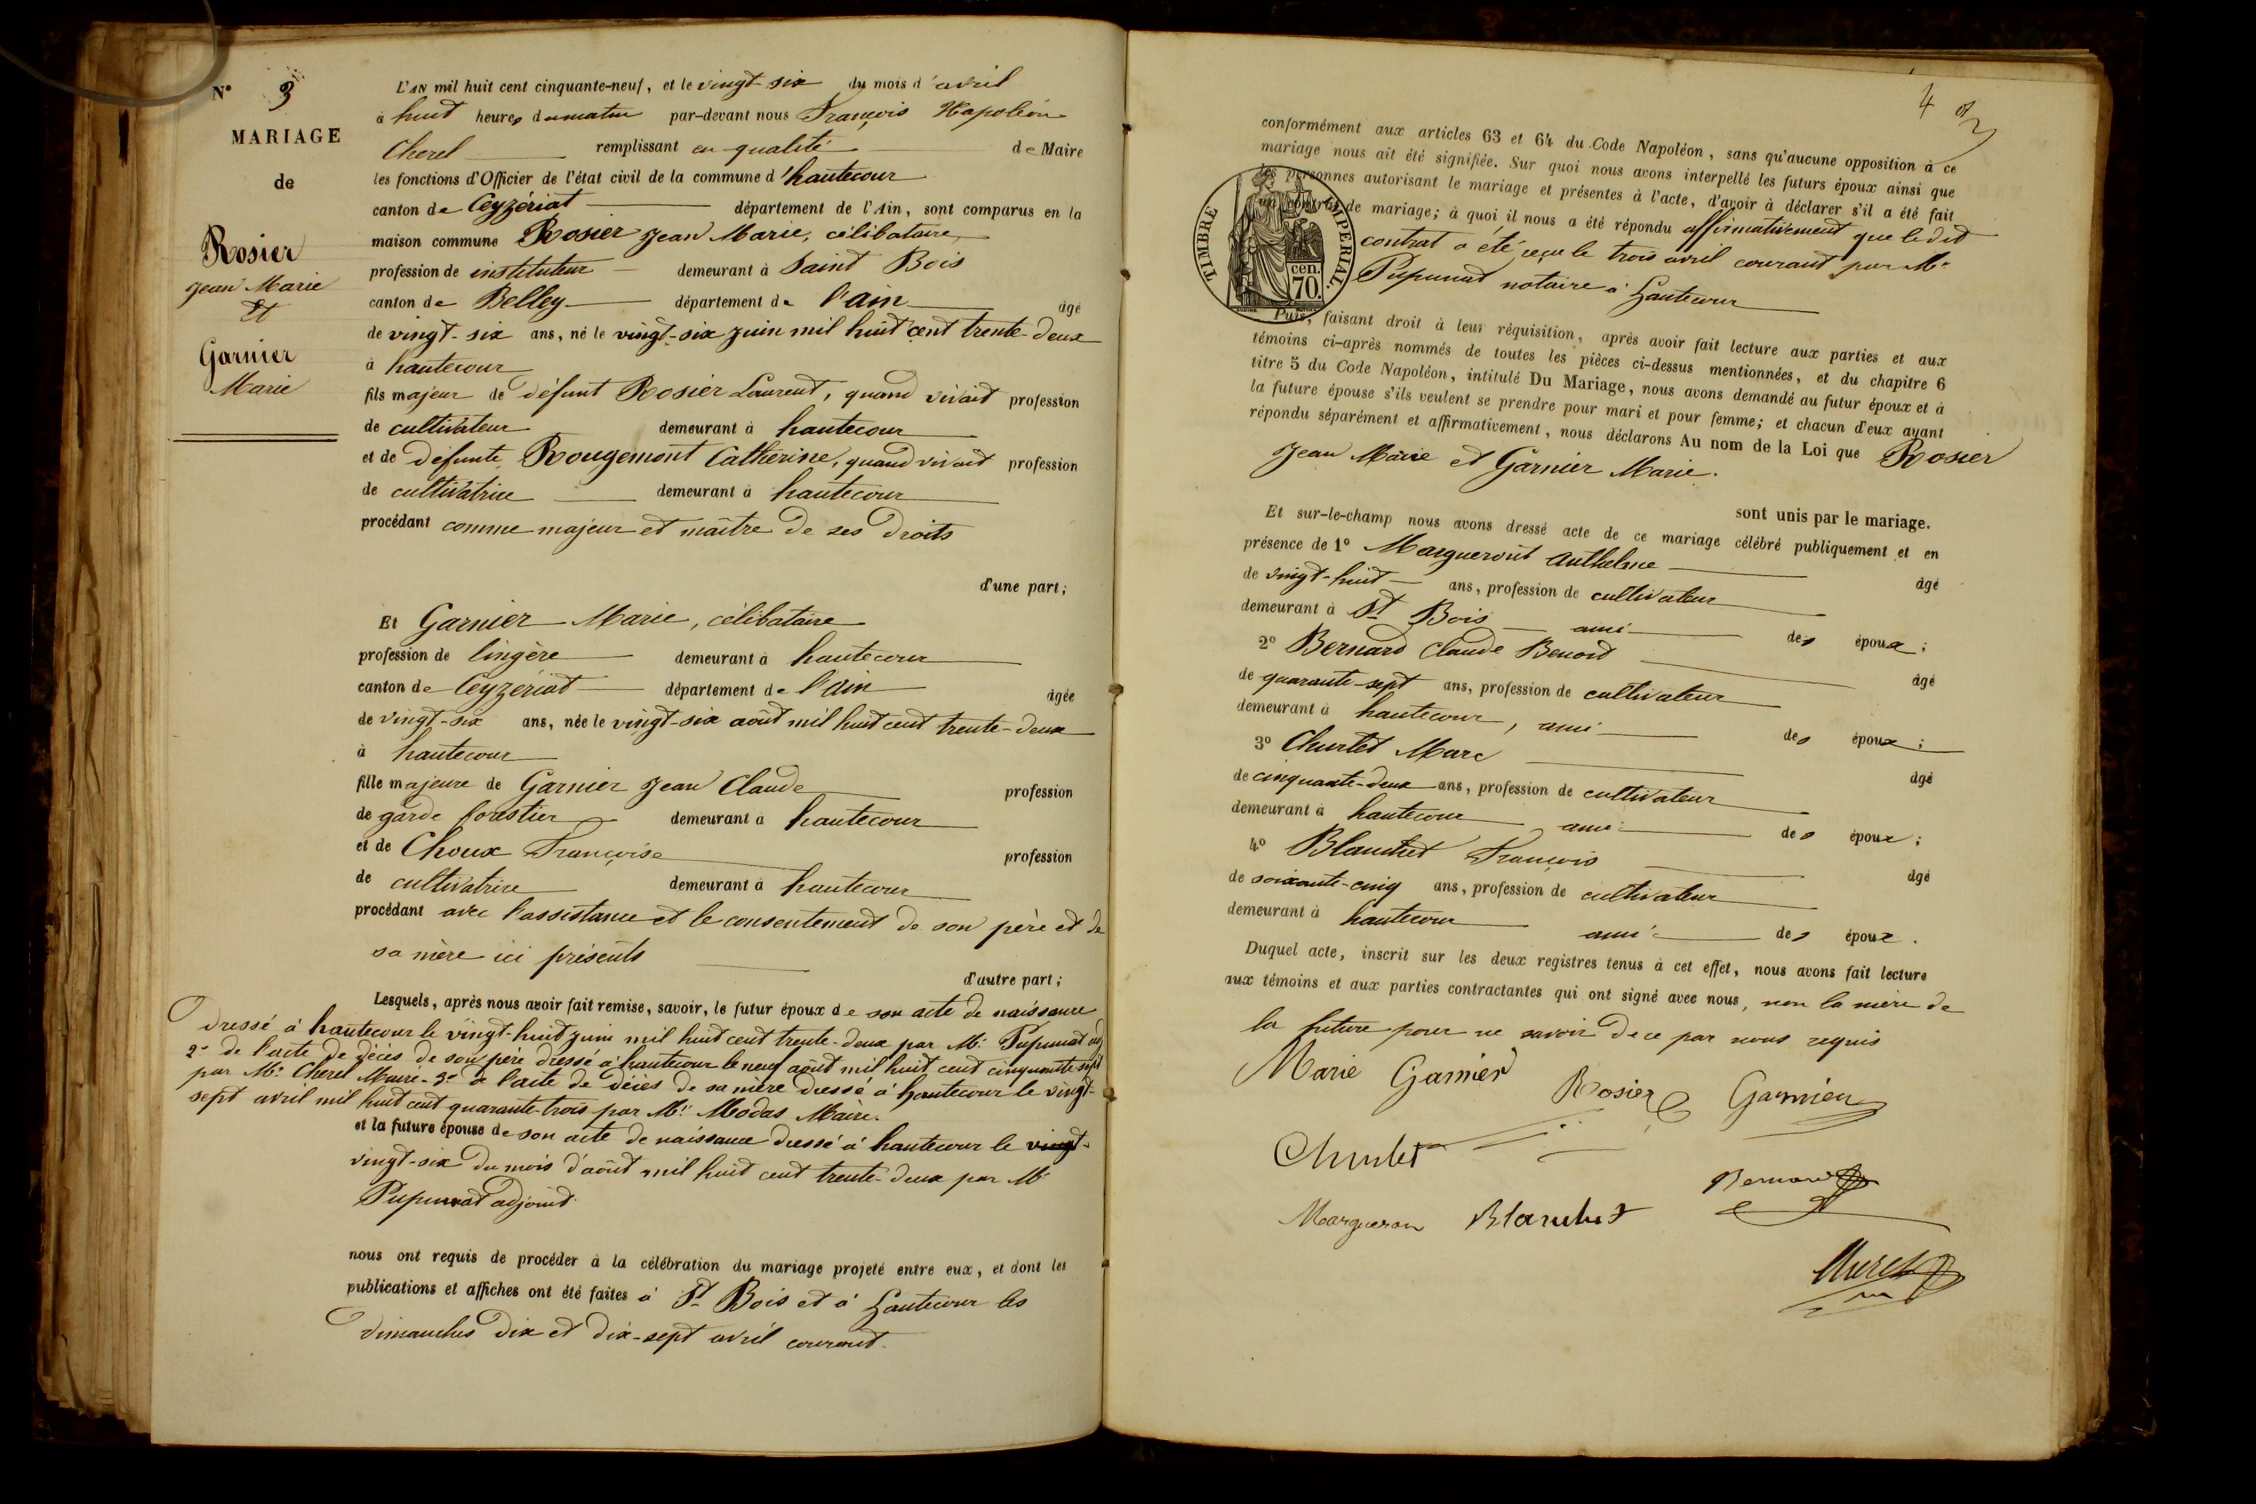 N° 3
MARIAGE
de
Rosier
Jean Marie
Et
Garnier
Marie
L'AN mil huit cent cinquante-neuf, et le vingt-six du mois d'avril
à huit heures du matin par-devant nous François Napoléon
Cherel remplissant en qualité de Maire
les fonctions d'Officier de l'état civil de la commune d'hautecour
canton de Ceyzériat département de l'Ain, sont comparus en la
maison commune Rosier Jean Marie, célibataire
profession de instituteur demeurant à Saint Bois
canton de Belley département de l'ain âgé
de vingt-six ans, né le vingt-six juin mil huit cent trente-deux
à hautecour
fils majeur de défunt Rosier Laurent, quand vivait profession
de cultivateur demeurant à hautecour
et de défunte Rougemont Catherine, quand vivait profession
de cultivatrice demeurant à hautecour
procédant comme majeur et maître de ses droits
d'une part;
Et Garnier Marie, célibataire
profession de lingère demeurant à hautecour
canton de Ceyzériat département de l'ain âgée
de vingt-six ans, née le vingt-six août mil huit cent trente-deux
à hautecour
fille majeure de Garnier Jean Claude profession
de garde forestier demeurant à hautecour
et de Choux Françoise profession
de cultivatrice demeurant à hautecour
procédant avec l'assistance et le consentement de son père et de
sa mère ici présents
d'autre part;
Lesquels, après nous avoir fait remise, savoir, le futur époux de son acte de naissance
dressé à hautecour le vingt-huit juin mil huit cent trente-deux par Mr Pupunat adj
2° de l'acte de décès de son père dressé à hautecour le neuf août mil huit cent cinquante sept
par Mr Cherel Maire - 3° de l'acte de décès de sa mère dressé à hautecour le vingt-
sept avril mil huit cent quarante-trois par Mr Modas Maire.
et la future épouse de son acte de naissance dressé à hautecour le vingt-
vingt-six du mois d'août mil huit cent trente-deux par Mr
Pupunat adjoint
nous ont requis de procéder à la célébration du mariage projeté entre eux, et dont les
publications et affiches ont été faites à St Bois et à hautecour les
dimanches dix et dix-sept avril courant.
4
conformément aux articles 63 et 64 du Code Napoléon, sans qu'aucune opposition à ce
mariage nous ait été signifiée. Sur quoi nous avons interpellé les futurs époux ainsi que
les personnes autorisant le mariage et présentes à l'acte, d'avoir à déclarer s'il a été fait
un contrat de mariage; à quoi il nous a été répondu affirmativement que ledit
contrat a été reçu le trois avril courant par Mr
Pupunat notaire à hautecour
TIMBRE IMPERIAL.
cen.
70.
Puis, faisant droit à leur réquisition, après avoir fait lecture aux parties et aux
témoins ci-après nommés de toutes les pièces ci-dessus mentionnées, et du chapitre 6
titre 5 du Code Napoléon, intitulé Du Mariage, nous avons demandé au futur époux et à
la future épouse s'ils veulent se prendre pour mari et pour femme; et chacun d'eux ayant
répondu séparément et affirmativement, nous déclarons Au nom de la Loi que Rosier
Jean Marie et Garnier Marie.
sont unis par le mariage.
Et sur-le-champ nous avons dressé acte de ce mariage célébré publiquement et en
présence de 1° Margueront Anthelme âgé
de vingt-huit ans, profession de cultivateur
demeurant à St Bois ami des époux;
2° Bernard Claude Benoit âgé
de quarante-sept ans, profession de cultivateur
demeurant à hautecour, ami des époux;
3° Churlet Marc âgé
de cinquante-deux ans, profession de cultivateur
demeurant à hautecour ami des époux;
4° Blanchet François âgé
de soixante-cinq ans, profession de cultivateur
demeurant à hautecour ami des époux.
Duquel acte, inscrit sur les deux registres tenus à cet effet, nous avons fait lecture
aux témoins et aux parties contractantes qui ont signé avec nous, non la mère de
la future pour ne savoir de ce par nous requis
Marie Garnier Rosier Garnier
Churlet
Bernard
Margueron Blanchet